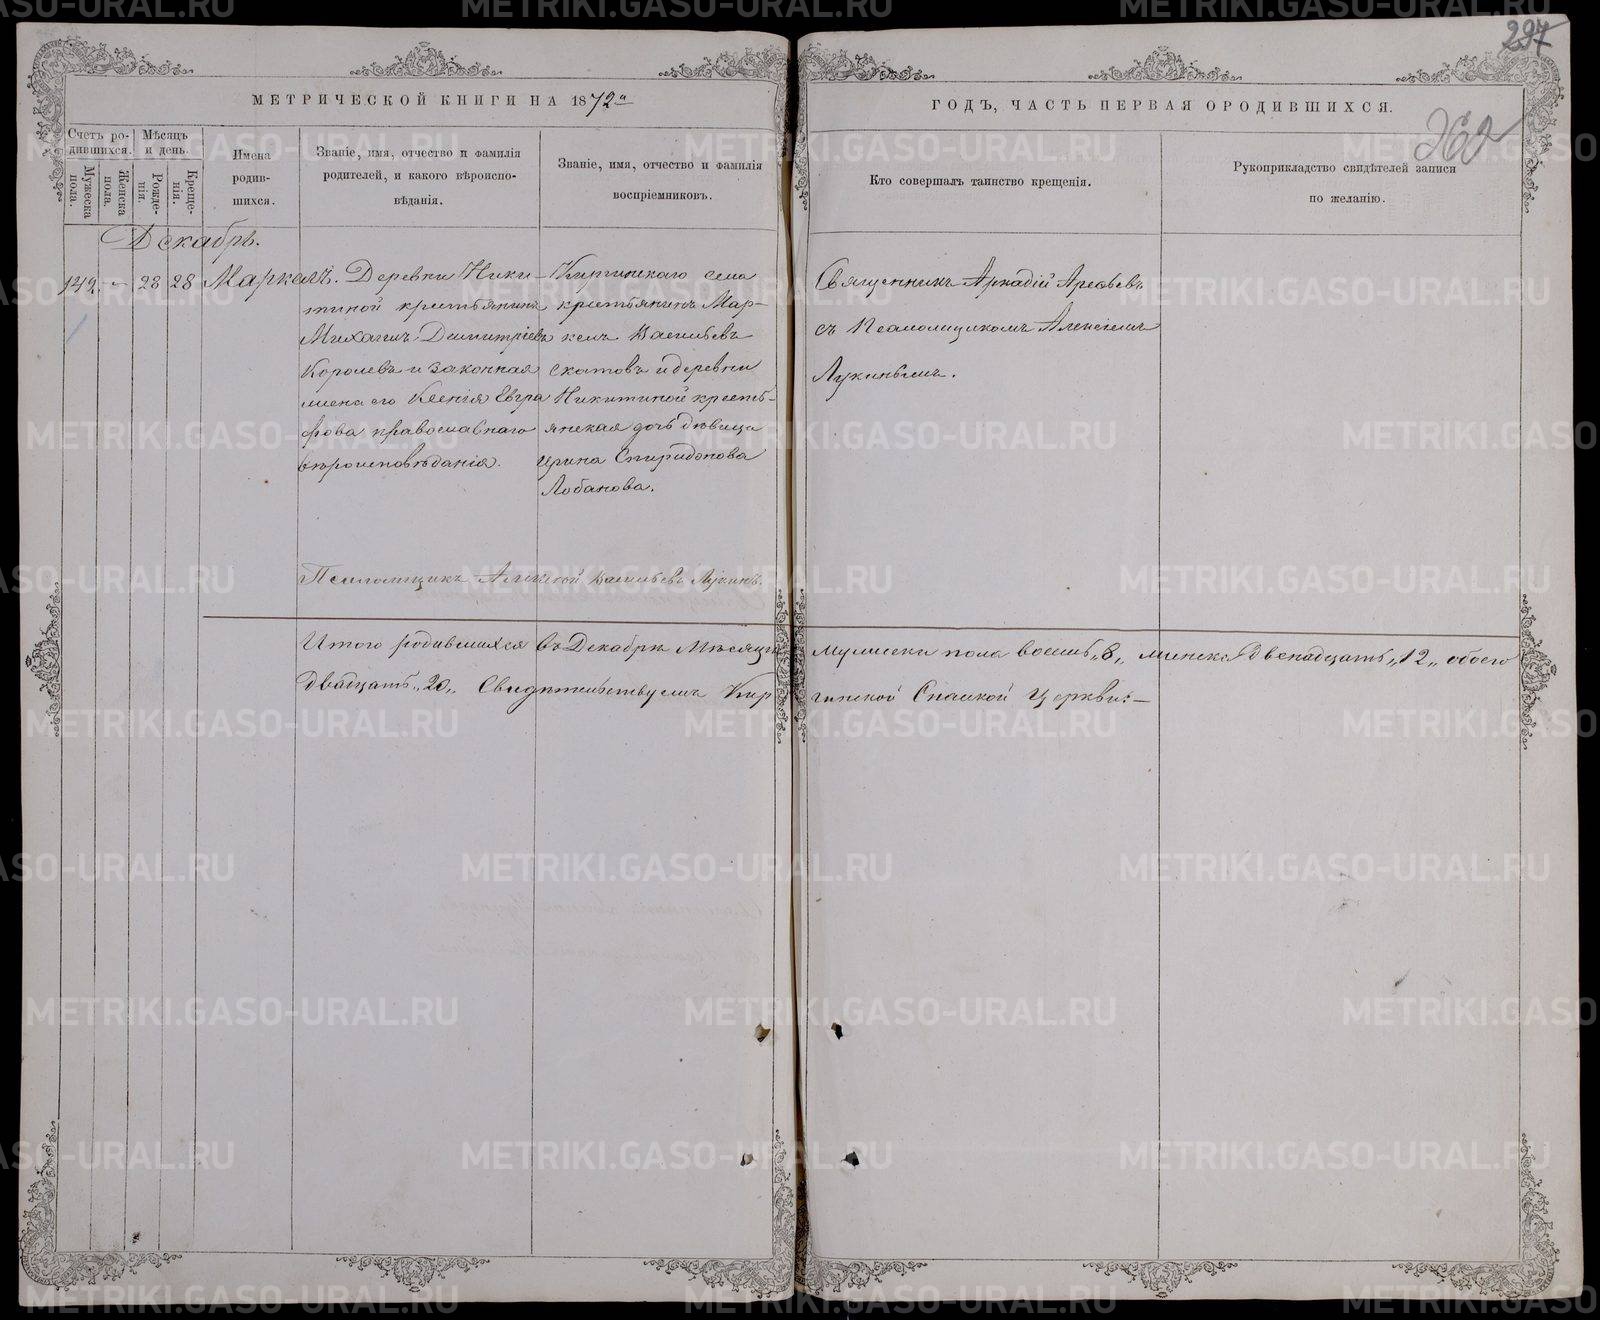 297
262
МЕТРИЧЕСКОЙ КНИГИ НА 1872й
ГОДЪ, ЧАСТЬ ПЕРВАЯ О РОДИВШИХСЯ.
Счетъ ро-
дившихся.
Мужеска
пола.
Женска
пола.
Мѣсяцъ
и день.
Рожде-
нія.
Креще-
нія.
Имена
родив-
шихся.
Званіе, имя, отчество и фамилія
родителей, и какого вѣроиспо-
вѣданія.
Званіе, имя, отчество и фамилія
воспріемниковъ.
Кто совершалъ таинство крещенія.
Рукоприкладство свидѣтелей записи
по желанію.
Декабрь.
142. – 28 28 Маркелъ.
Деревни Ники-
тиной крестьянинъ
Михаилъ Димитріевъ
Королевъ и законная
жена его Ксенія Евгра
фова православнаго
вѣроисповѣданія.
Киргинскаго села
крестьянинъ Мар-
келъ Васильевъ
Скатовъ и деревни
Никитиной кресть-
янская дочь дѣвица
Ирина Спиридонова
Лобанова.
Священникъ Аркадій Арефьевъ
съ Псаломщикомъ Алексіемъ
Лукинымъ.
Псаломщикъ Алексѣй Васильевъ Лукинъ.
Итого родившихся въ Декабрѣ Мѣсяцѣ мужеска пола восемь „8„ женска двенадцать „12„ обоего
двадцать „20„ Свидѣтельствуемъ Кир гинской Спасской Церкви: —
METRIKI.GASO-URAL.RU